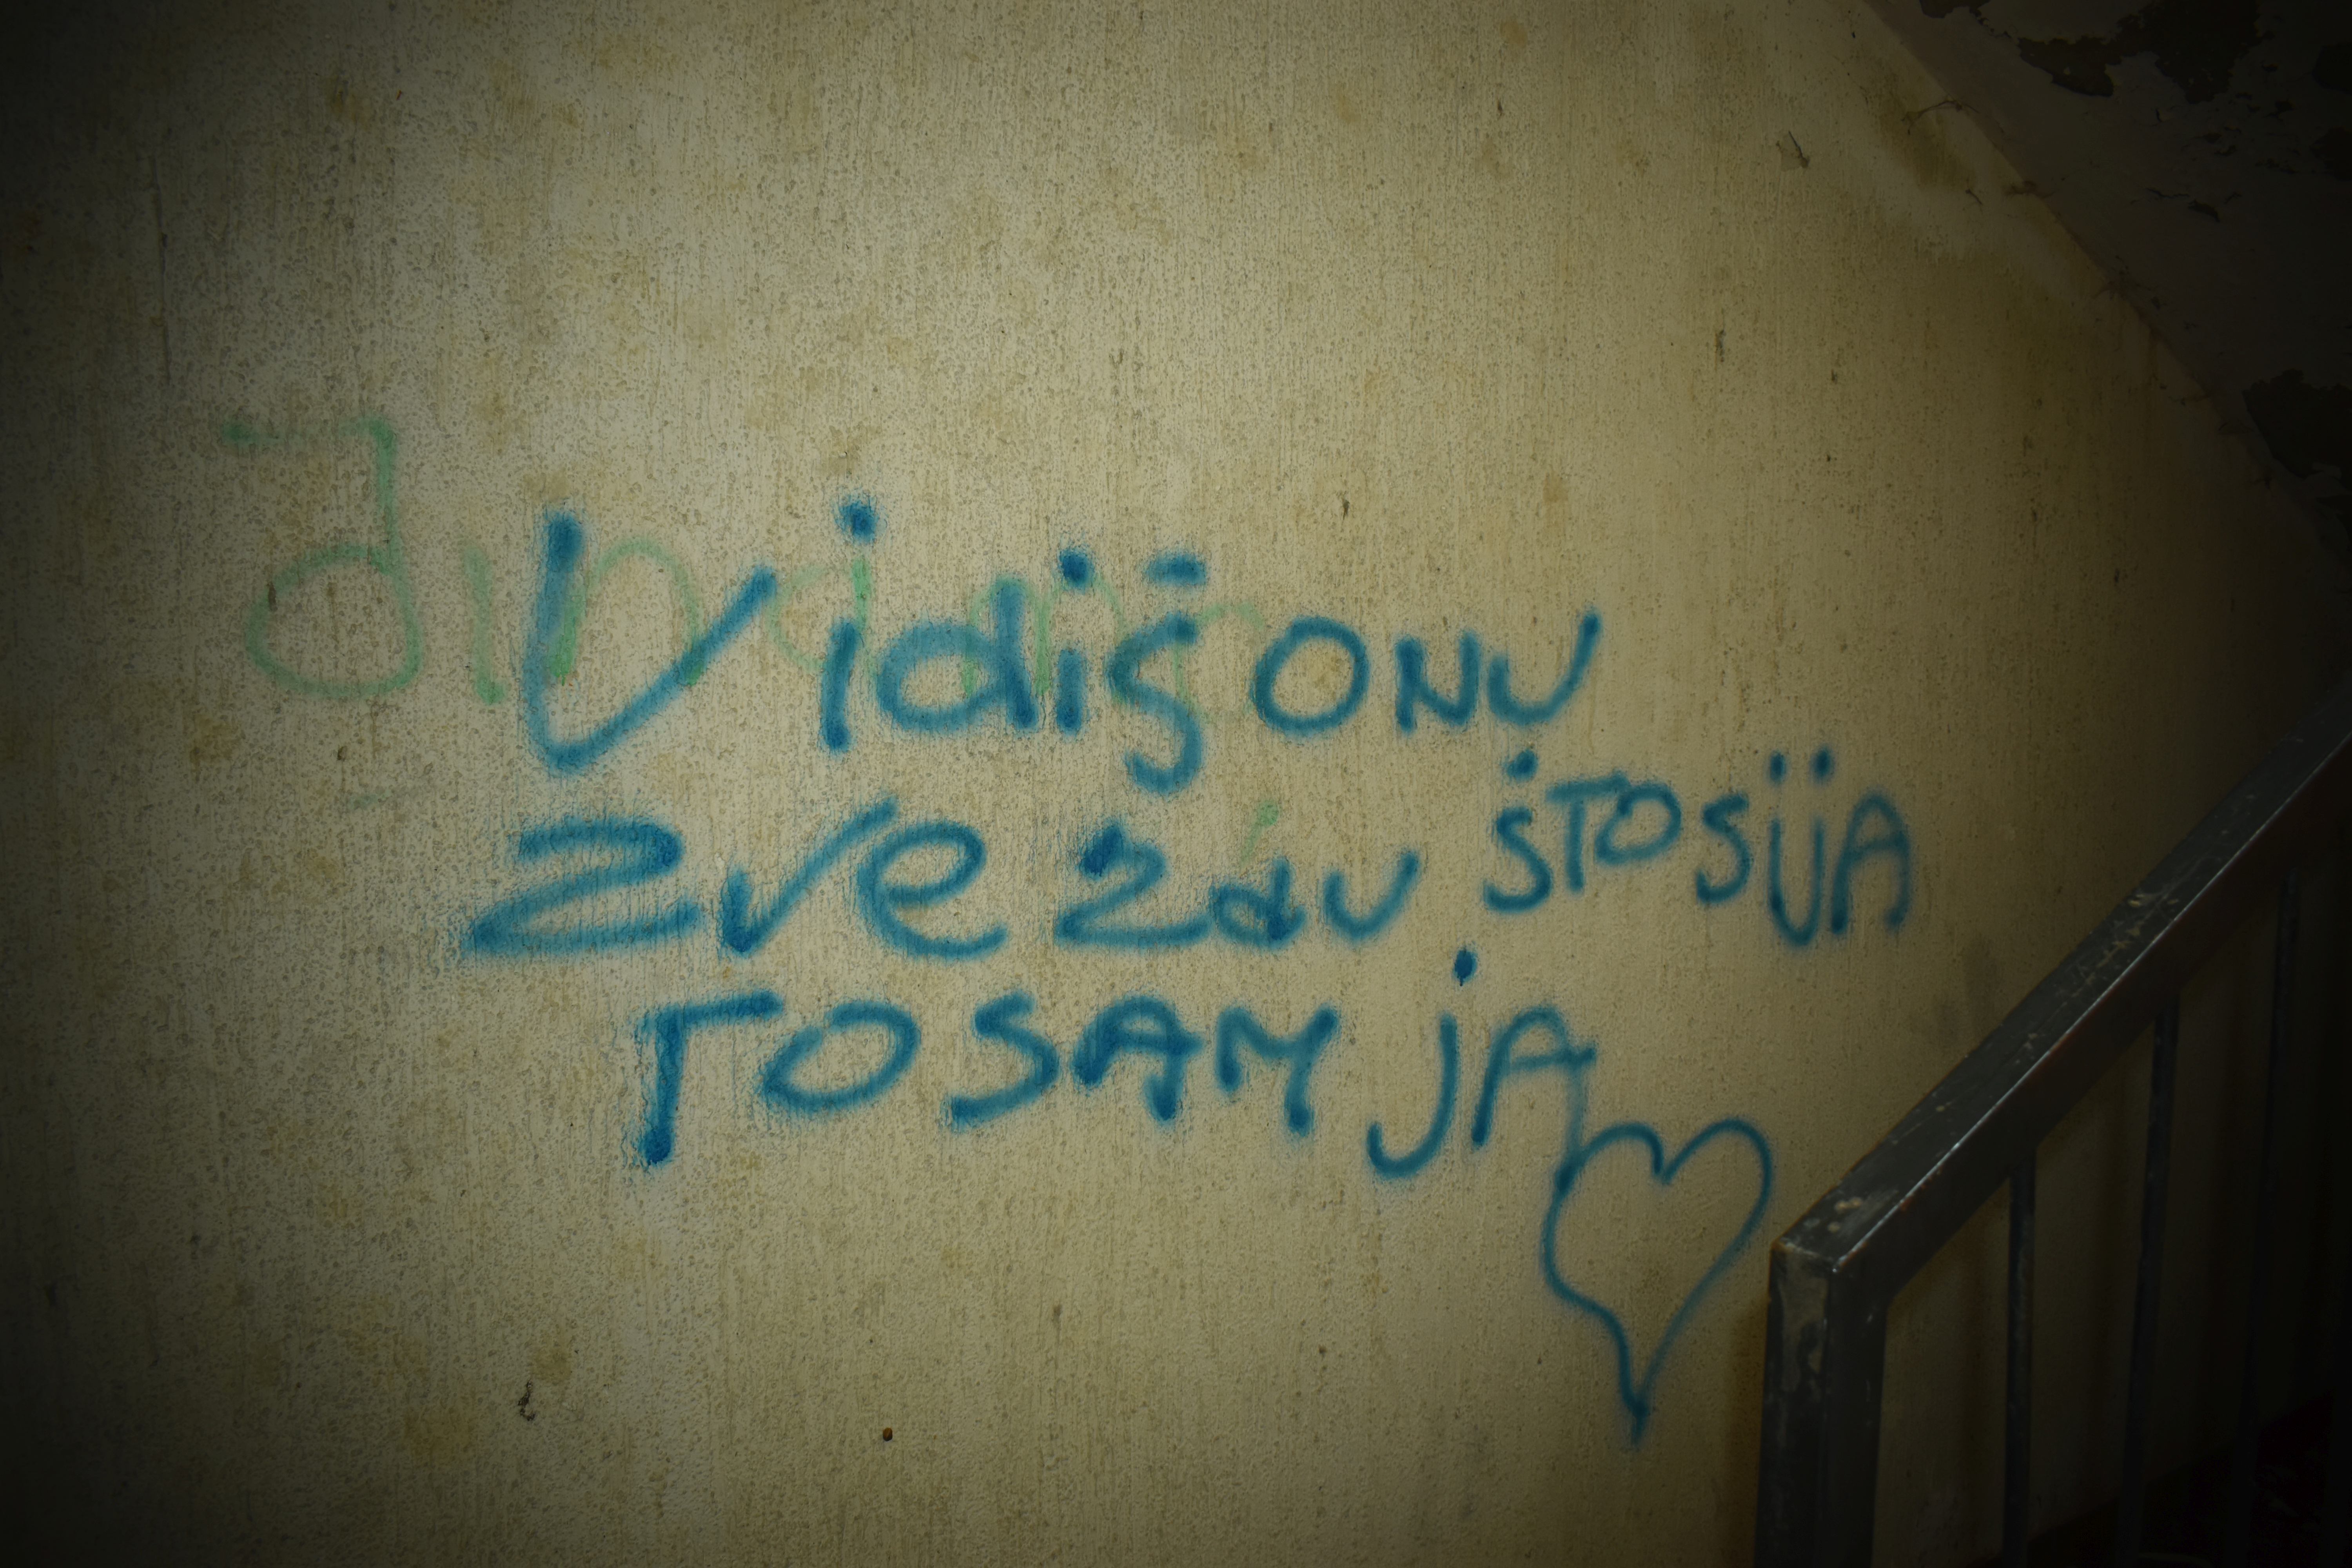 Vidiš onu
zvezdu što sija
TO SAM jA